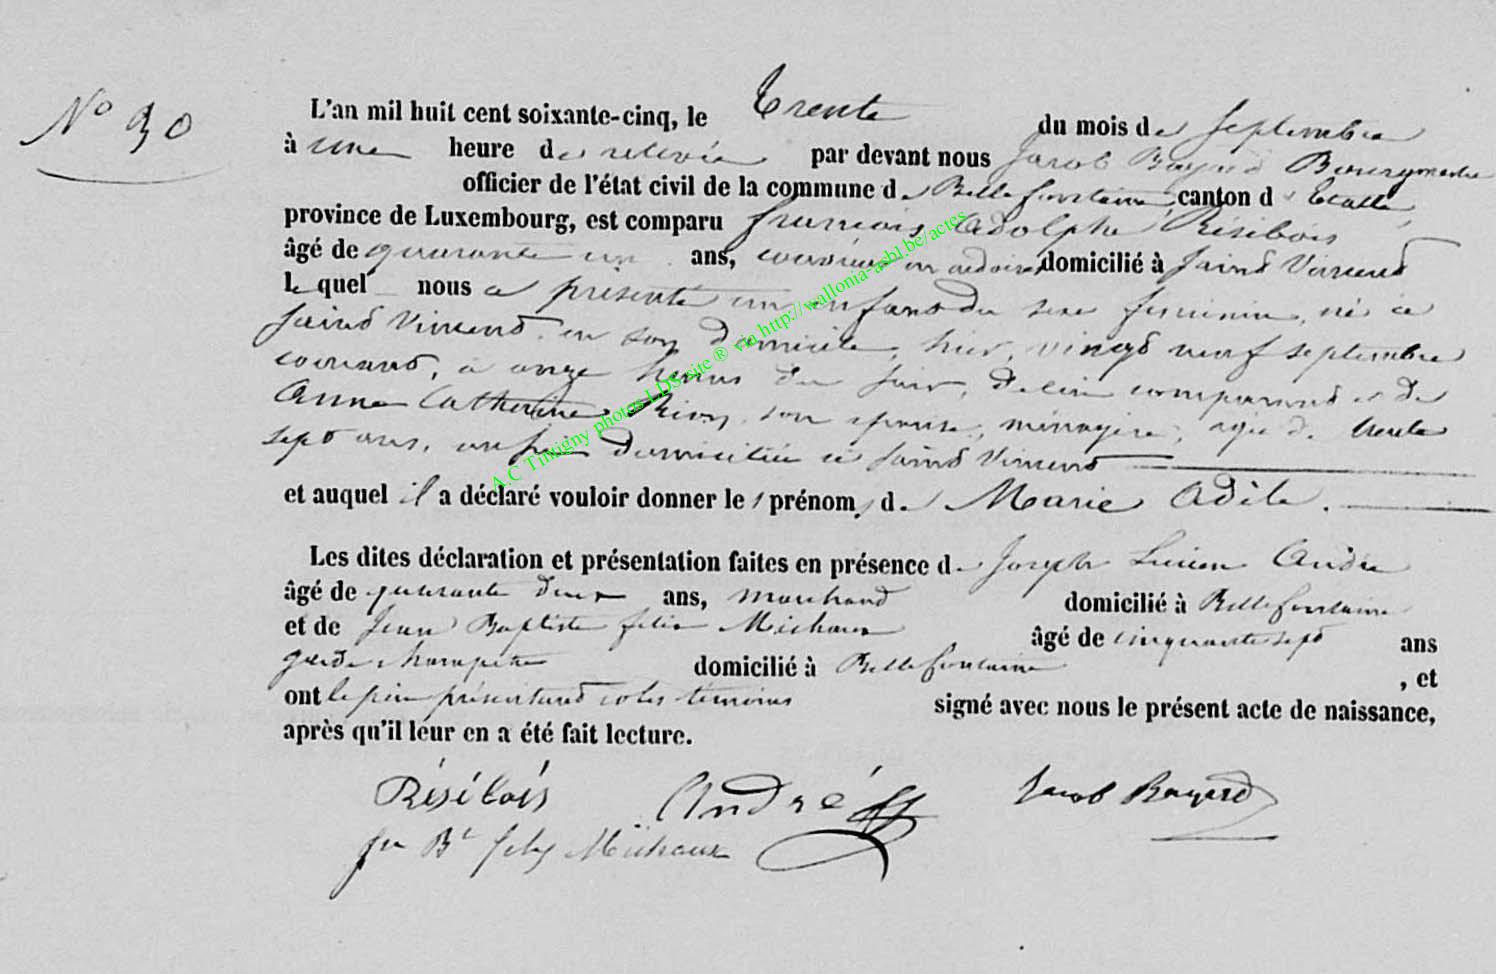 N° 30
L'an mil huit cent soixante-cinq, le Trente du mois de Septembre
à une heure de relevée par devant nous Jacob Bayard Bourgmestre
officier de l'état civil de la commune de Bellefontaine, canton d'Etalle,
province de Luxembourg, est comparu françois Adolphe Résibois
âgé de quarante un ans, ouvrier domicilié à Saint Vincent
lequel nous a présenté un enfant du sexe féminin, né à
Saint Vincent en son domicile, hier, vingt neuf septembre
courant, à onze heures du soir, de lui comparant et de
Anna Catherine son épouse, ménagère, agée de trente
sept ans, aussi domiciliée à Saint Vincent
et auquel il a déclaré vouloir donner les prénoms de Marie Adèle.
Les dites déclaration et présentation faites en présence de Joseph Lucien André
âgé de quarante deux ans, marchand domicilié à Bellefontaine
et de Jean Baptiste felix Michaux âgé de cinquante sept ans
garde champêtre domicilié à Bellefontaine, et
ont le père présentant et les témoins signé avec nous le présent acte de naissance,
après qu'il leur en a été fait lecture.
Résibois André Jacob Bayard
Jn Bt felix Michaux
A.C Tintigny photos LDS-site ® via http://wallonia-asbl.be/actes